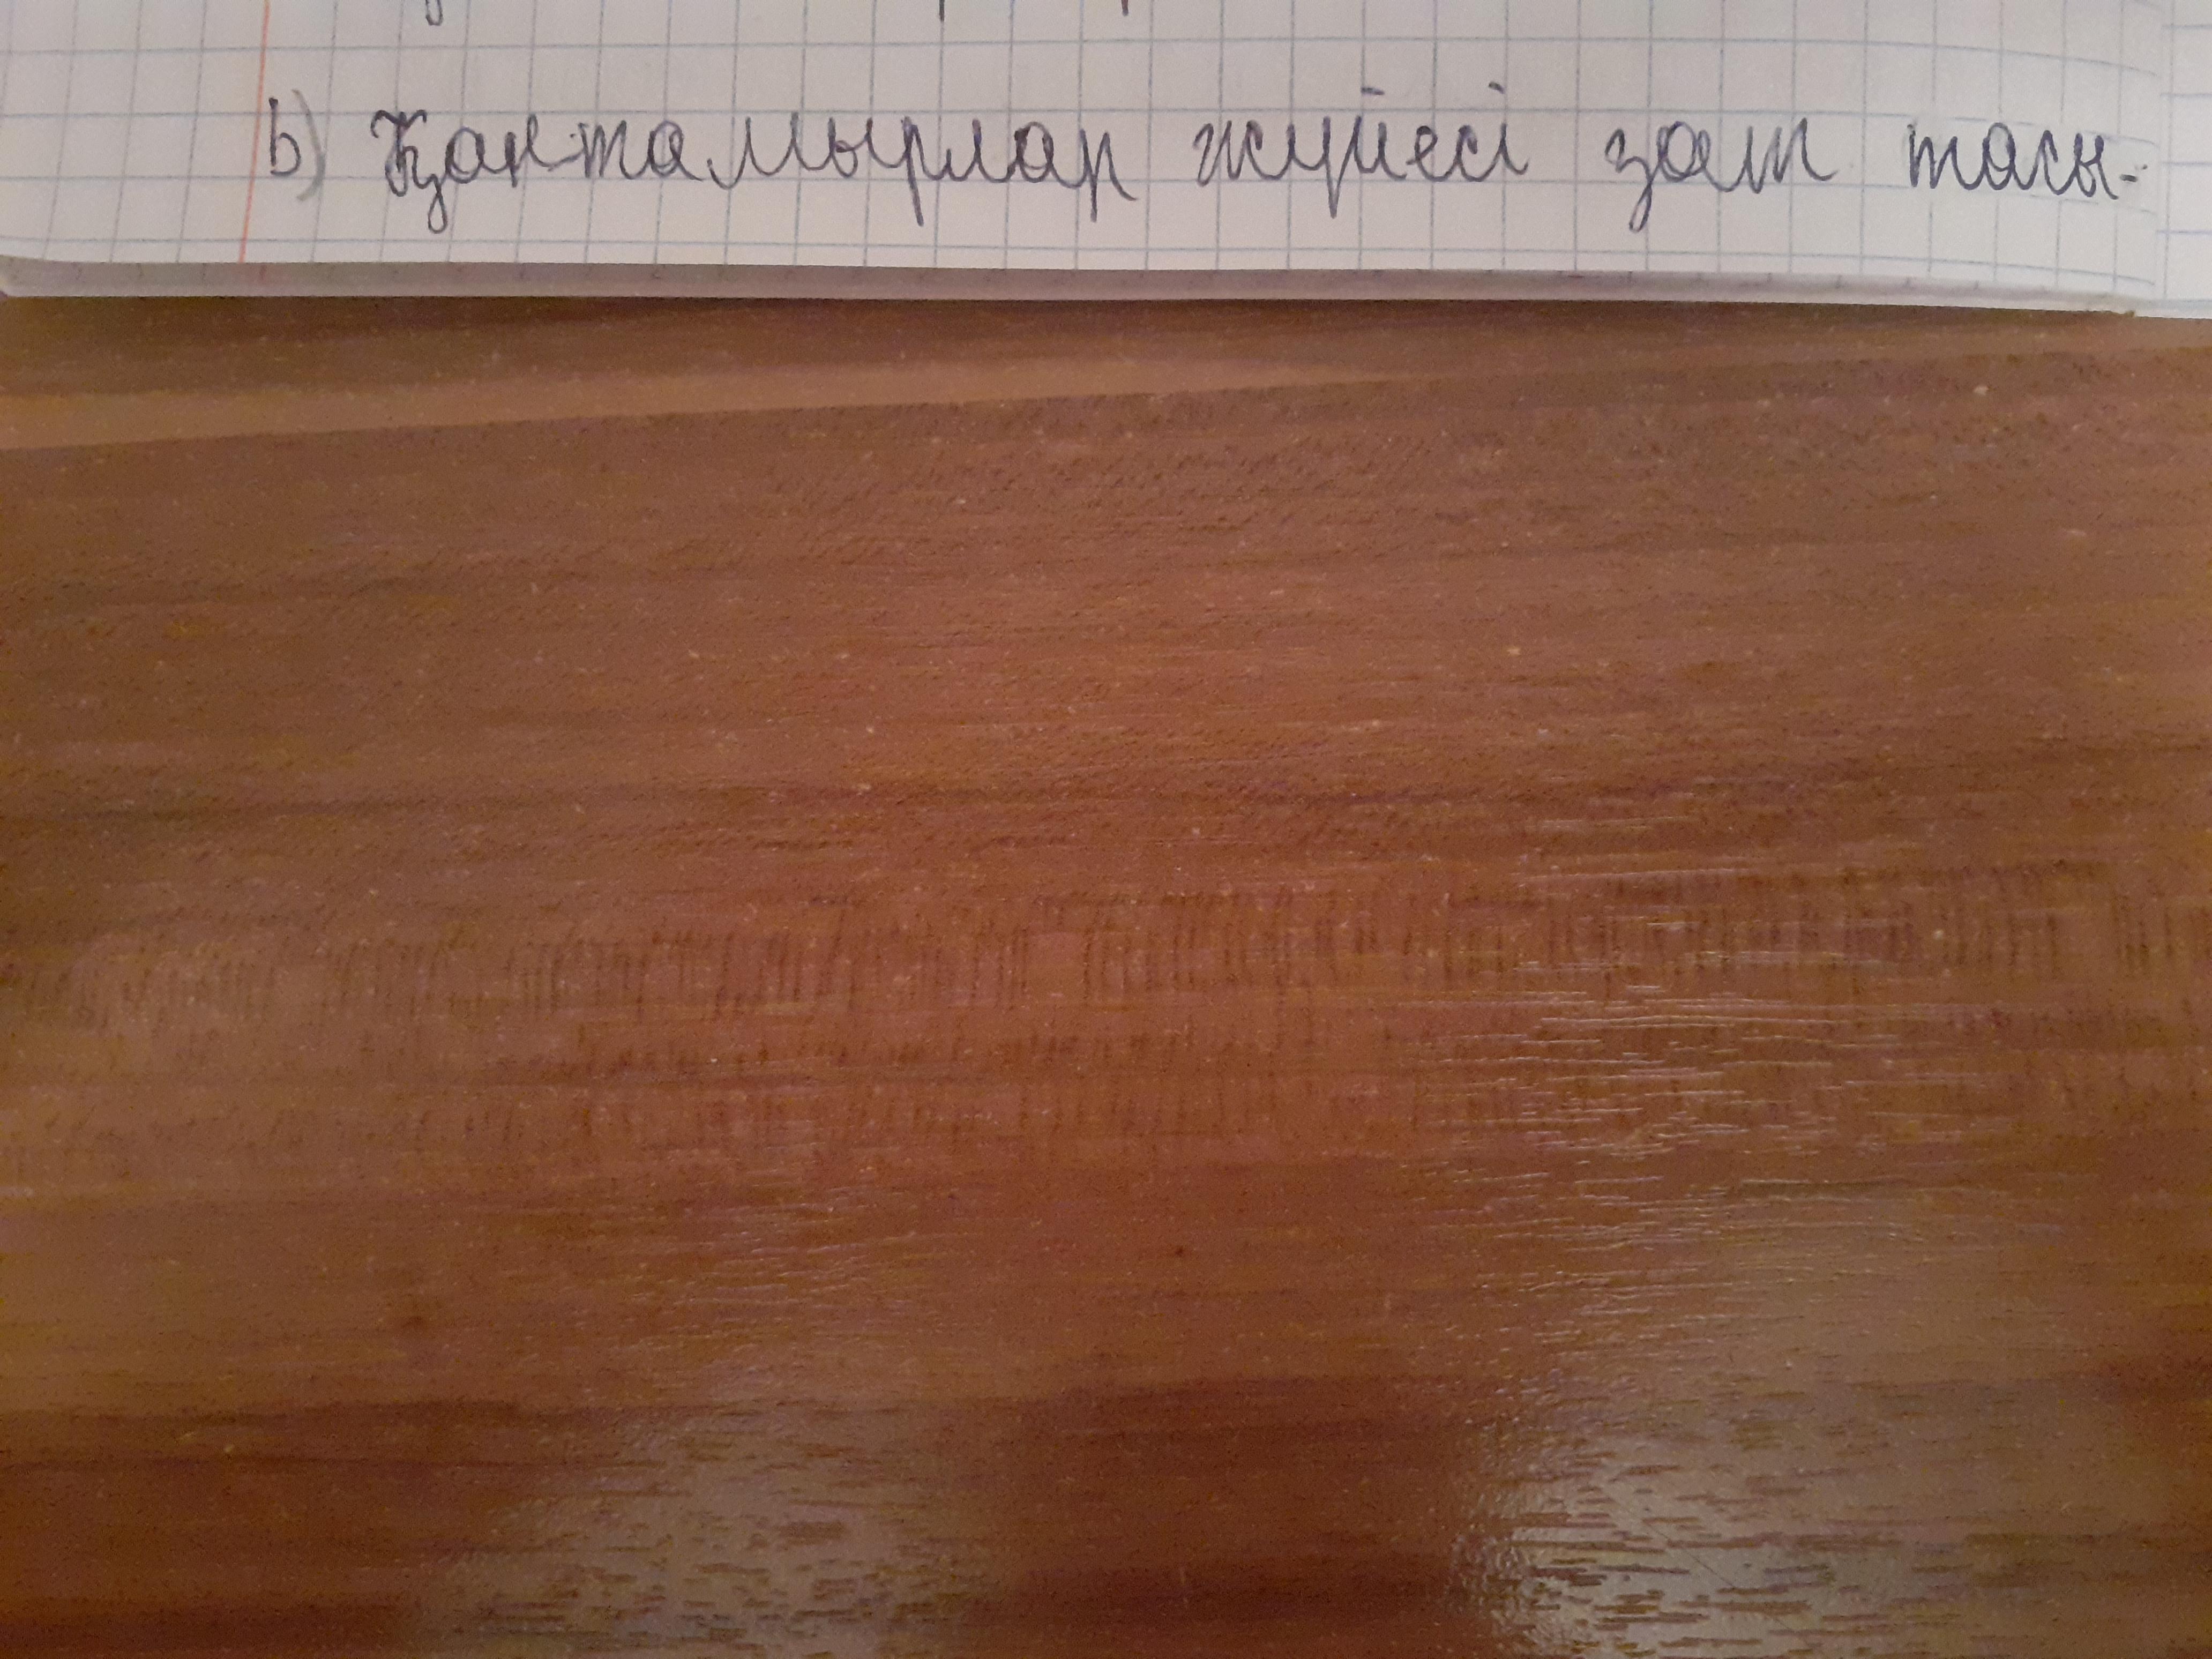 b) Қантамырлар жүйесі зат тасы-